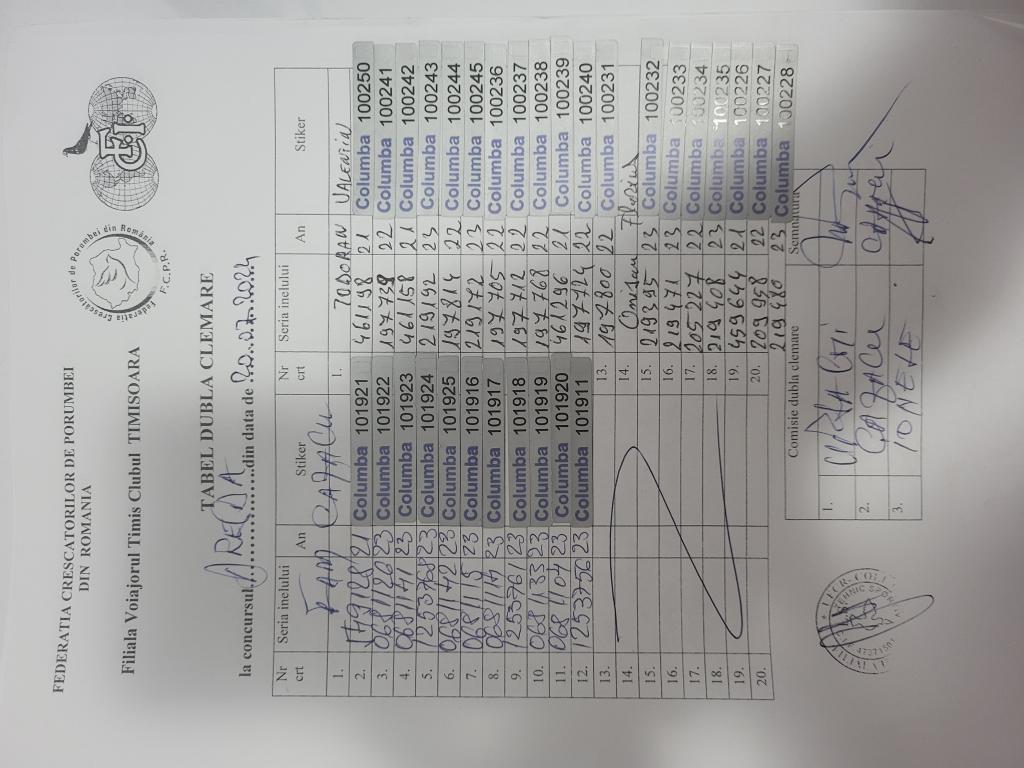 FEDERATIA CRESCATORILOR DE PORUMBEI
DIN ROMANIA
Filiala Voiajorul Timis Clubul TIMISOARA
Federatia Crescatorilor de Porumbei din România
F.C.P.R.
TABEL DUBLA CLEMARE
la concursul din data de
Nr crt Seria inelului An Stiker Nr crt Seria inelului An Stiker
1. 1. TODORAN VALENTIN
2. 21 Columba 101921 461198 21 Columba 100250
3. 0681126 23 Columba 101922 22 Columba 100241
4. 0681141 23 Columba 101923 461158 21 Columba 100242
5. 1253768 23 Columba 101924 219192 23 Columba 100243
6. 0681142 23 Columba 101925 197814 22 Columba 100244
7. 0681115 23 Columba 101916 219172 23 Columba 100245
8. 23 Columba 101917 197705 22 Columba 100236
9. 1253761 23 Columba 101918 197712 22 Columba 100237
10. 0681133 23 Columba 101919 197768 22 Columba 100238
11. 0681104 23 Columba 101920 461296 21 Columba 100239
12. 1253756 23 Columba 101911 197724 22 Columba 100240
13. 13. 197800 22 Columba 100231
14. 14.
15. 15. 219395 23 Columba 100232
16. 16. 219471 23 Columba 100233
17. 17. 205227 22 Columba 100234
18. 18. 219408 23 Columba 100235
19. 19. 459644 21 Columba 100226
20. 20. 209958 22 Columba 100227
219480 23 Columba 100228
Comisie dubla clemare Semnatura
1.
2.
3.